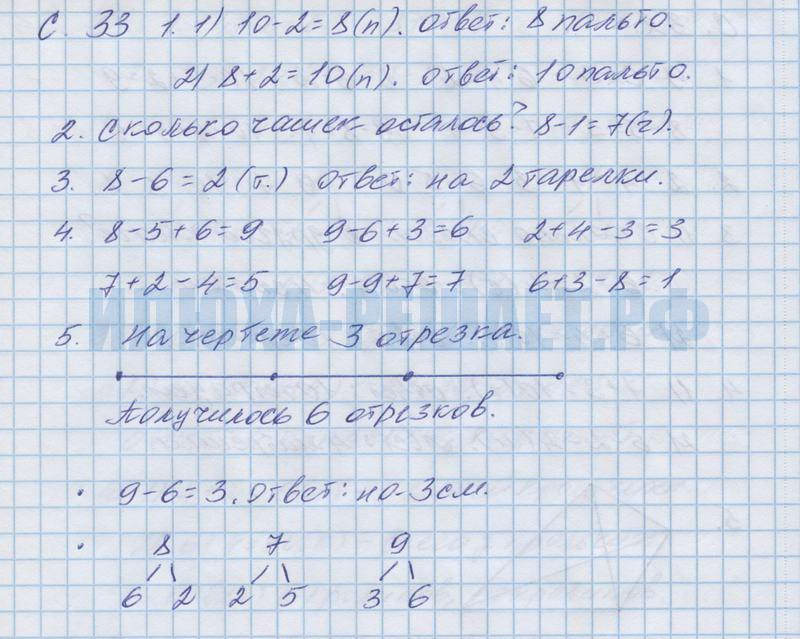 С. 33 1. 1) 10-2=8(п). ответ: 8 пальто.
2) 8+2=10(п). ответ: 10 пальто.
2. Сколько чашек осталось? 8-1=7(ч).
3. 8-6=2(т.) Ответ: на 2 тарелки.
4. 8-5+6=9 9-6+3=6 2+4-3=3
7+2-4=5 9-9+7=7 6+3-8=1
ИЛЮХА-РЕШАЕТ.РФ
5. На чертеже 3 отрезка.
Получилось 6 отрезков.
· 9-6=3. Ответ: на 3см.
· 8 7 9
6 2 2 5 3 6